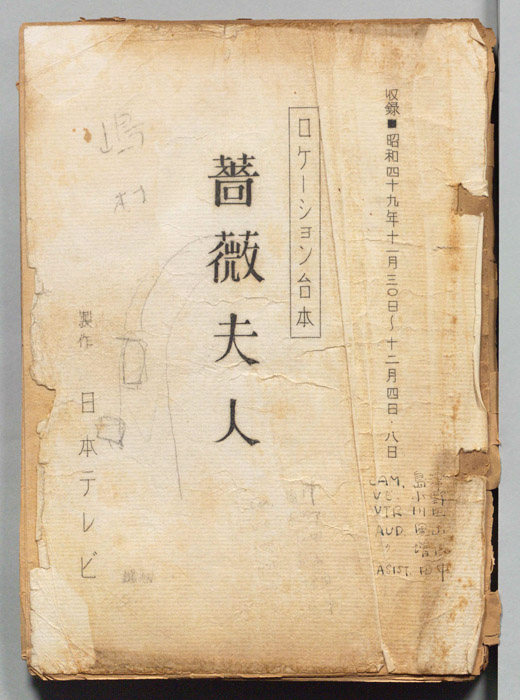 収録■昭和四十九年十一月三〇日〜十二月四日・八日
ロケーション台本
薔薇夫人
製作 日本テレビ
嶋村
CAM.
VE
VTR
AUD.
〃
ASIST.